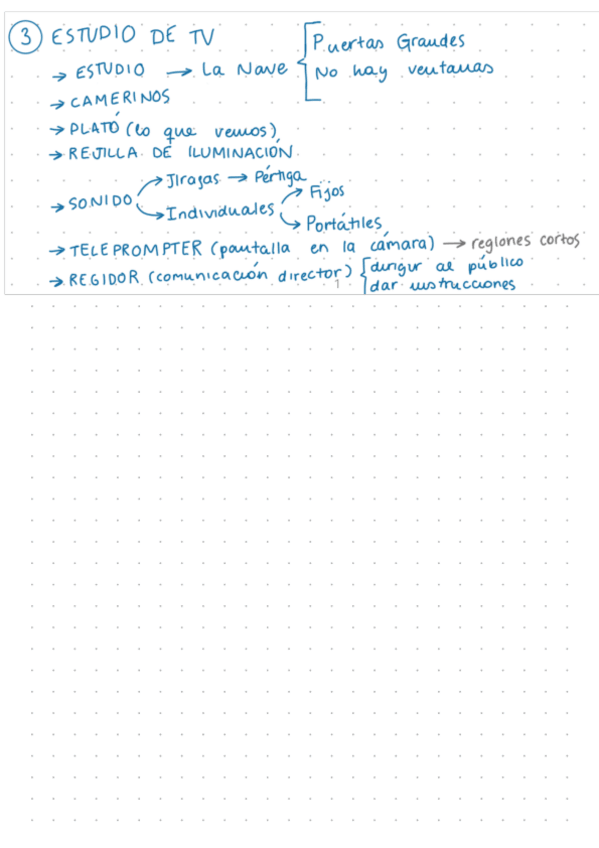 3 ESTUDIO DE TV
Puertas Grandes
→ ESTUDIO → La Nave
No hay ventanas
→ CAMERINOS
→ PLATÓ (lo que vemos)
→ REJILLA DE ILUMINACIÓN
→ SONIDO
Jirafas → Pértiga
Individuales
Fijos
Portátiles
→ TELEPROMPTER (pantalla en la cámara) → reglones cortos
→ REGIDOR (comunicación director)
dirigir al público
dar instrucciones
1